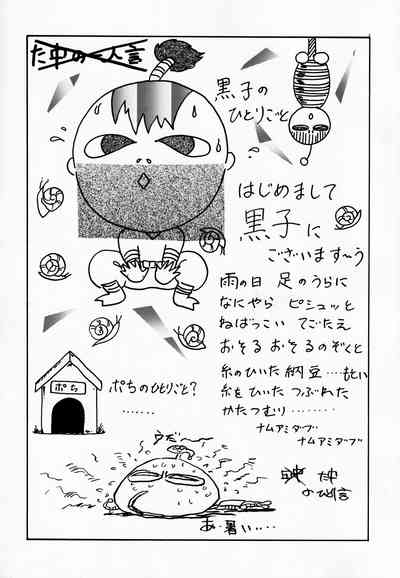 た中の一人言
黒子の
ひとりごと
はじめまして
黒子に
ございます〜う
雨の日 足のうらに
なにやら ピシュッと
ねばっこい てごたえ
おそる おそるのぞくと
糸のひいた納豆…もとい
糸をひいた つぶれた
かたつむり………
ナムアミダブ
ナムアミダブ
ポち
ポちのひとりごと?
……
うだ〜
あ…暑い….
た中
の一言